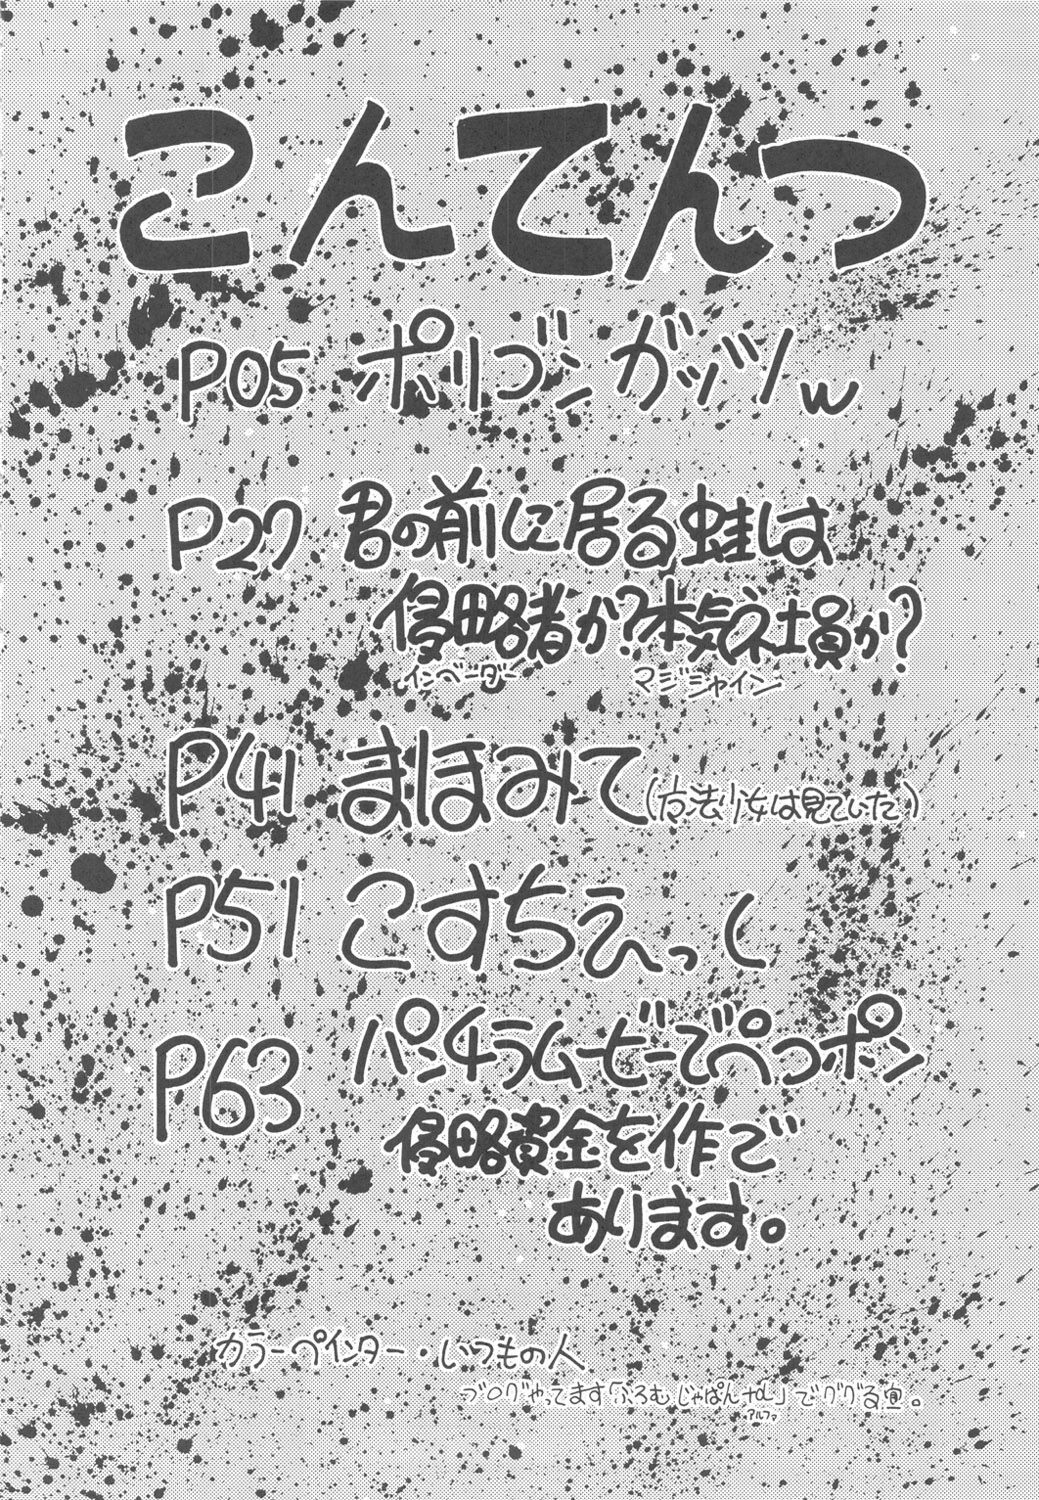 こんてんつ
P05 ポリゴンガッツw
P27 君の前に居る蛙は
侵略者か?本気ネ土員か?
インベーダー マジシャイン
P41 まほみて(方法少女は見ていた)
P51 こすちぇっく
P63 パンチラムービーでぺっポン
侵略資金を作で
あります。
カラーペインター・いつもの人
ブログやってます「ぶろむじゃぱん」でググる
アルファ